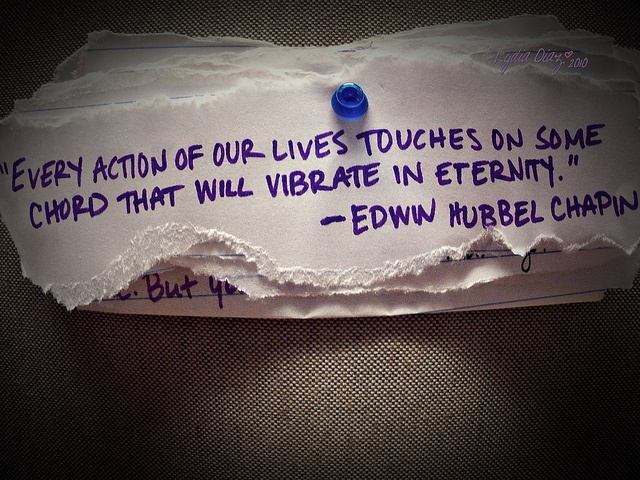 Lydia Diaz
2010
"EVERY ACTION OF OUR LIVES TOUCHES ON SOME
CHORD THAT WILL VIBRATE IN ETERNITY."
—EDWIN HUBBEL CHAPIN
. But